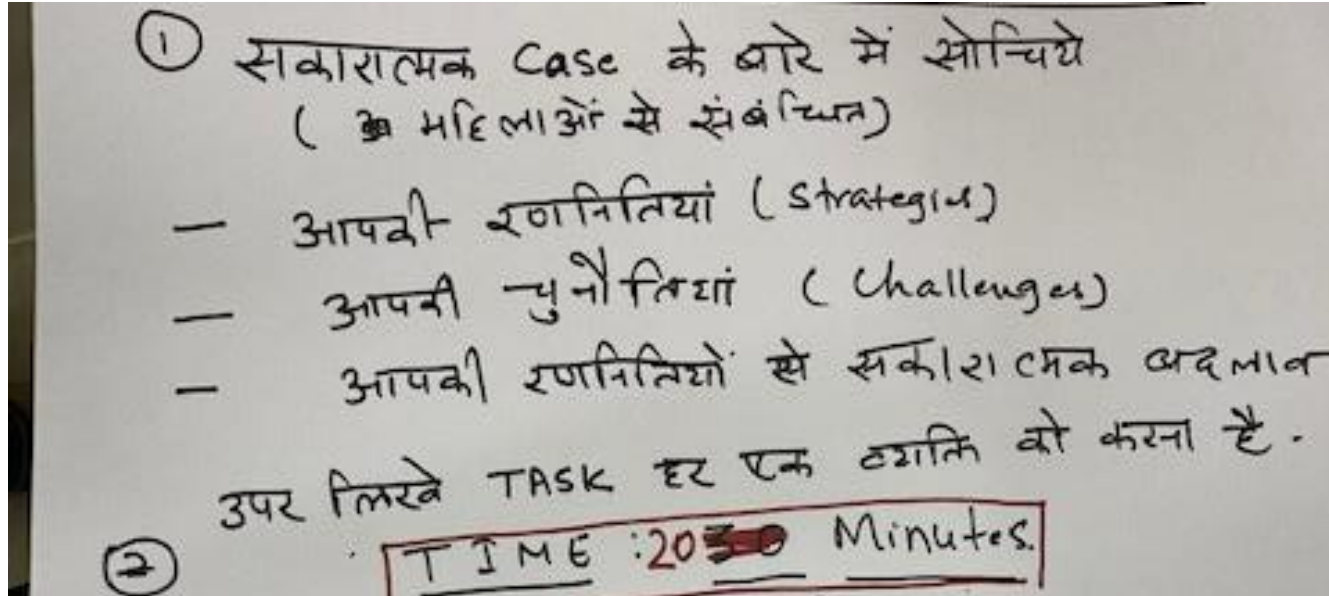 ① सकारात्मक Case के बारे में सोचिये
( महिलाओं से संबंधित)
— आपकी रणनितियां (Strategies)
— आपकी चुनौतियां (Challenges)
— आपकी रणनितियों से सकारात्मक बदलाव
उपर लिखे TASK हर एक व्यक्ति को करना है.
② TIME :20 Minutes.